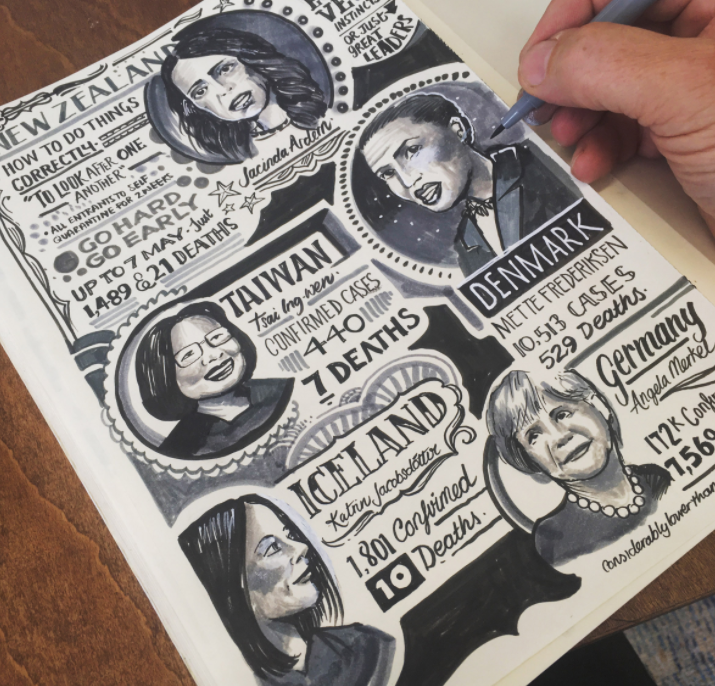 INSTINCT
OR JUST
GREAT
LEADERS
NEW ZEALAND
HOW TO DO THINGS
CORRECTLY.
"TO LOOK AFTER ONE
ANOTHER"
• ALL ENTRANTS TO SELF
QUARANTINE FOR 2 WEEKS
GO HARD
GO EARLY
UP TO 7 MAY. Just
1,489 & 21 DEATHS
Jacinda Ardern
DENMARK
METTE FREDERIKSEN
10,513 CASES
529 Deaths.
TAIWAN
Tsai Ing-wen.
CONFIRMED CASES
440
7 DEATHS
Germany
Angela Merkel
172K Conf
7,569
considerably lower than
ICELAND
Katrín Jacobsdóttir
1,801 Confirmed
10 Deaths.